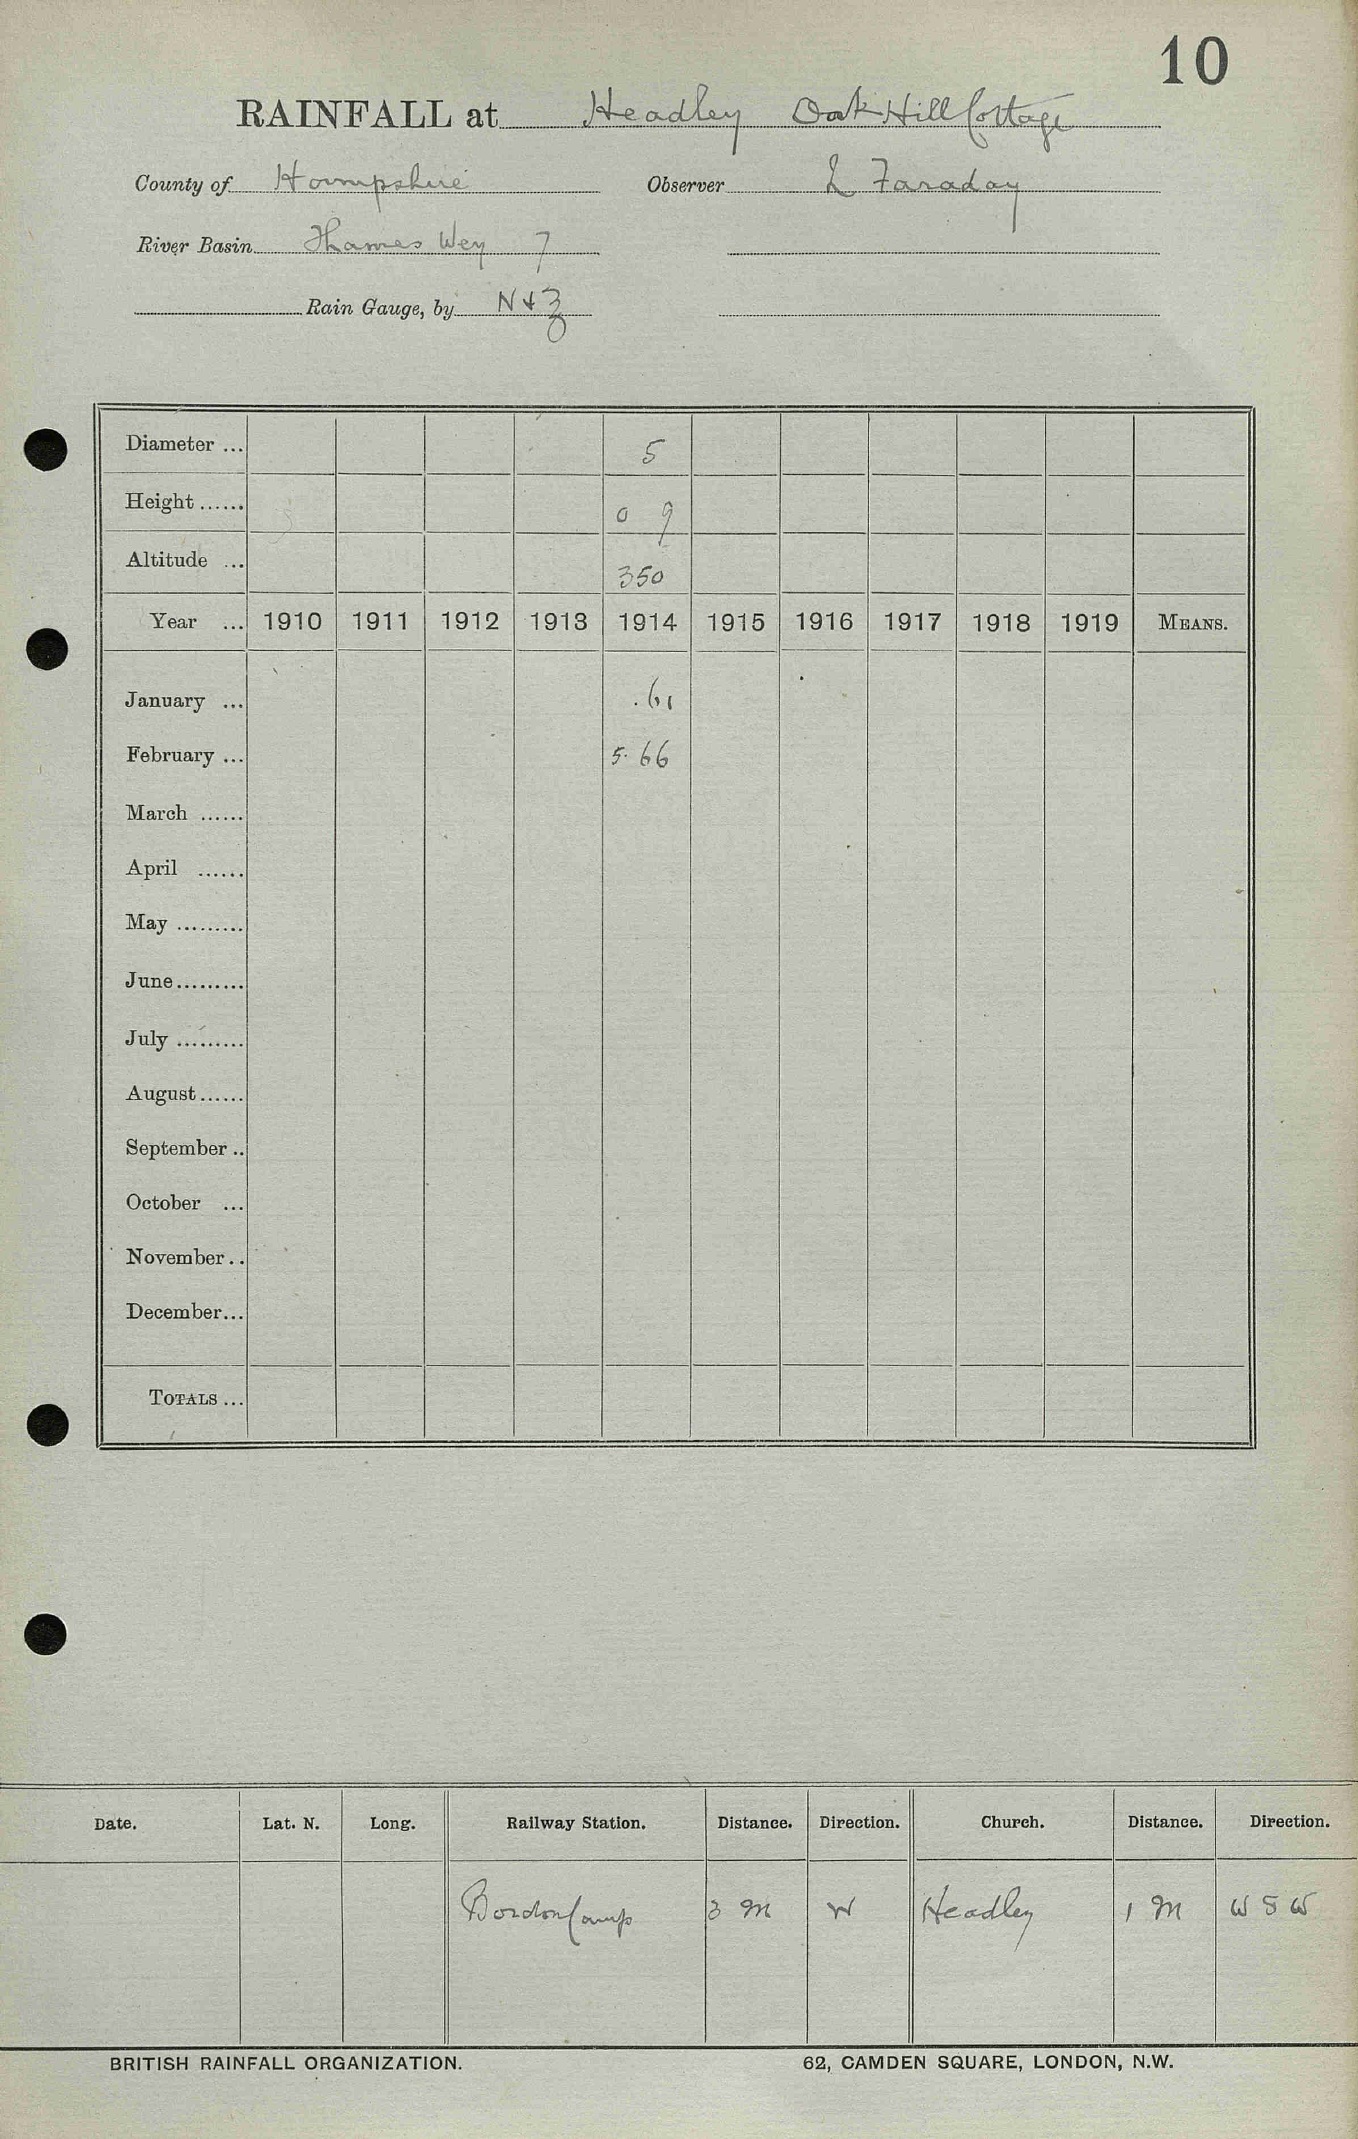 10
RAINFALL at Headley Oak Hill Cottage
County of Hampshire Observer L Faraday
River Basin Thames Wey 7
Rain Gauge, by N & Z
Diameter ... 5
Height ...... 0 9
Altitude ... 350
Year ... 1910 1911 1912 1913 1914 1915 1916 1917 1918 1919 MEANS.
January ... .61
February ... 5.66
March ......
April ......
May .........
June.........
July .........
August......
September ..
October ...
November..
December...
TOTALS ...
Date. Lat. N. Long. Railway Station. Distance. Direction. Church. Distance. Direction.
Bordon Camp 3 M W Headley 1 M W S W
BRITISH RAINFALL ORGANIZATION. 62, CAMDEN SQUARE, LONDON, N.W.